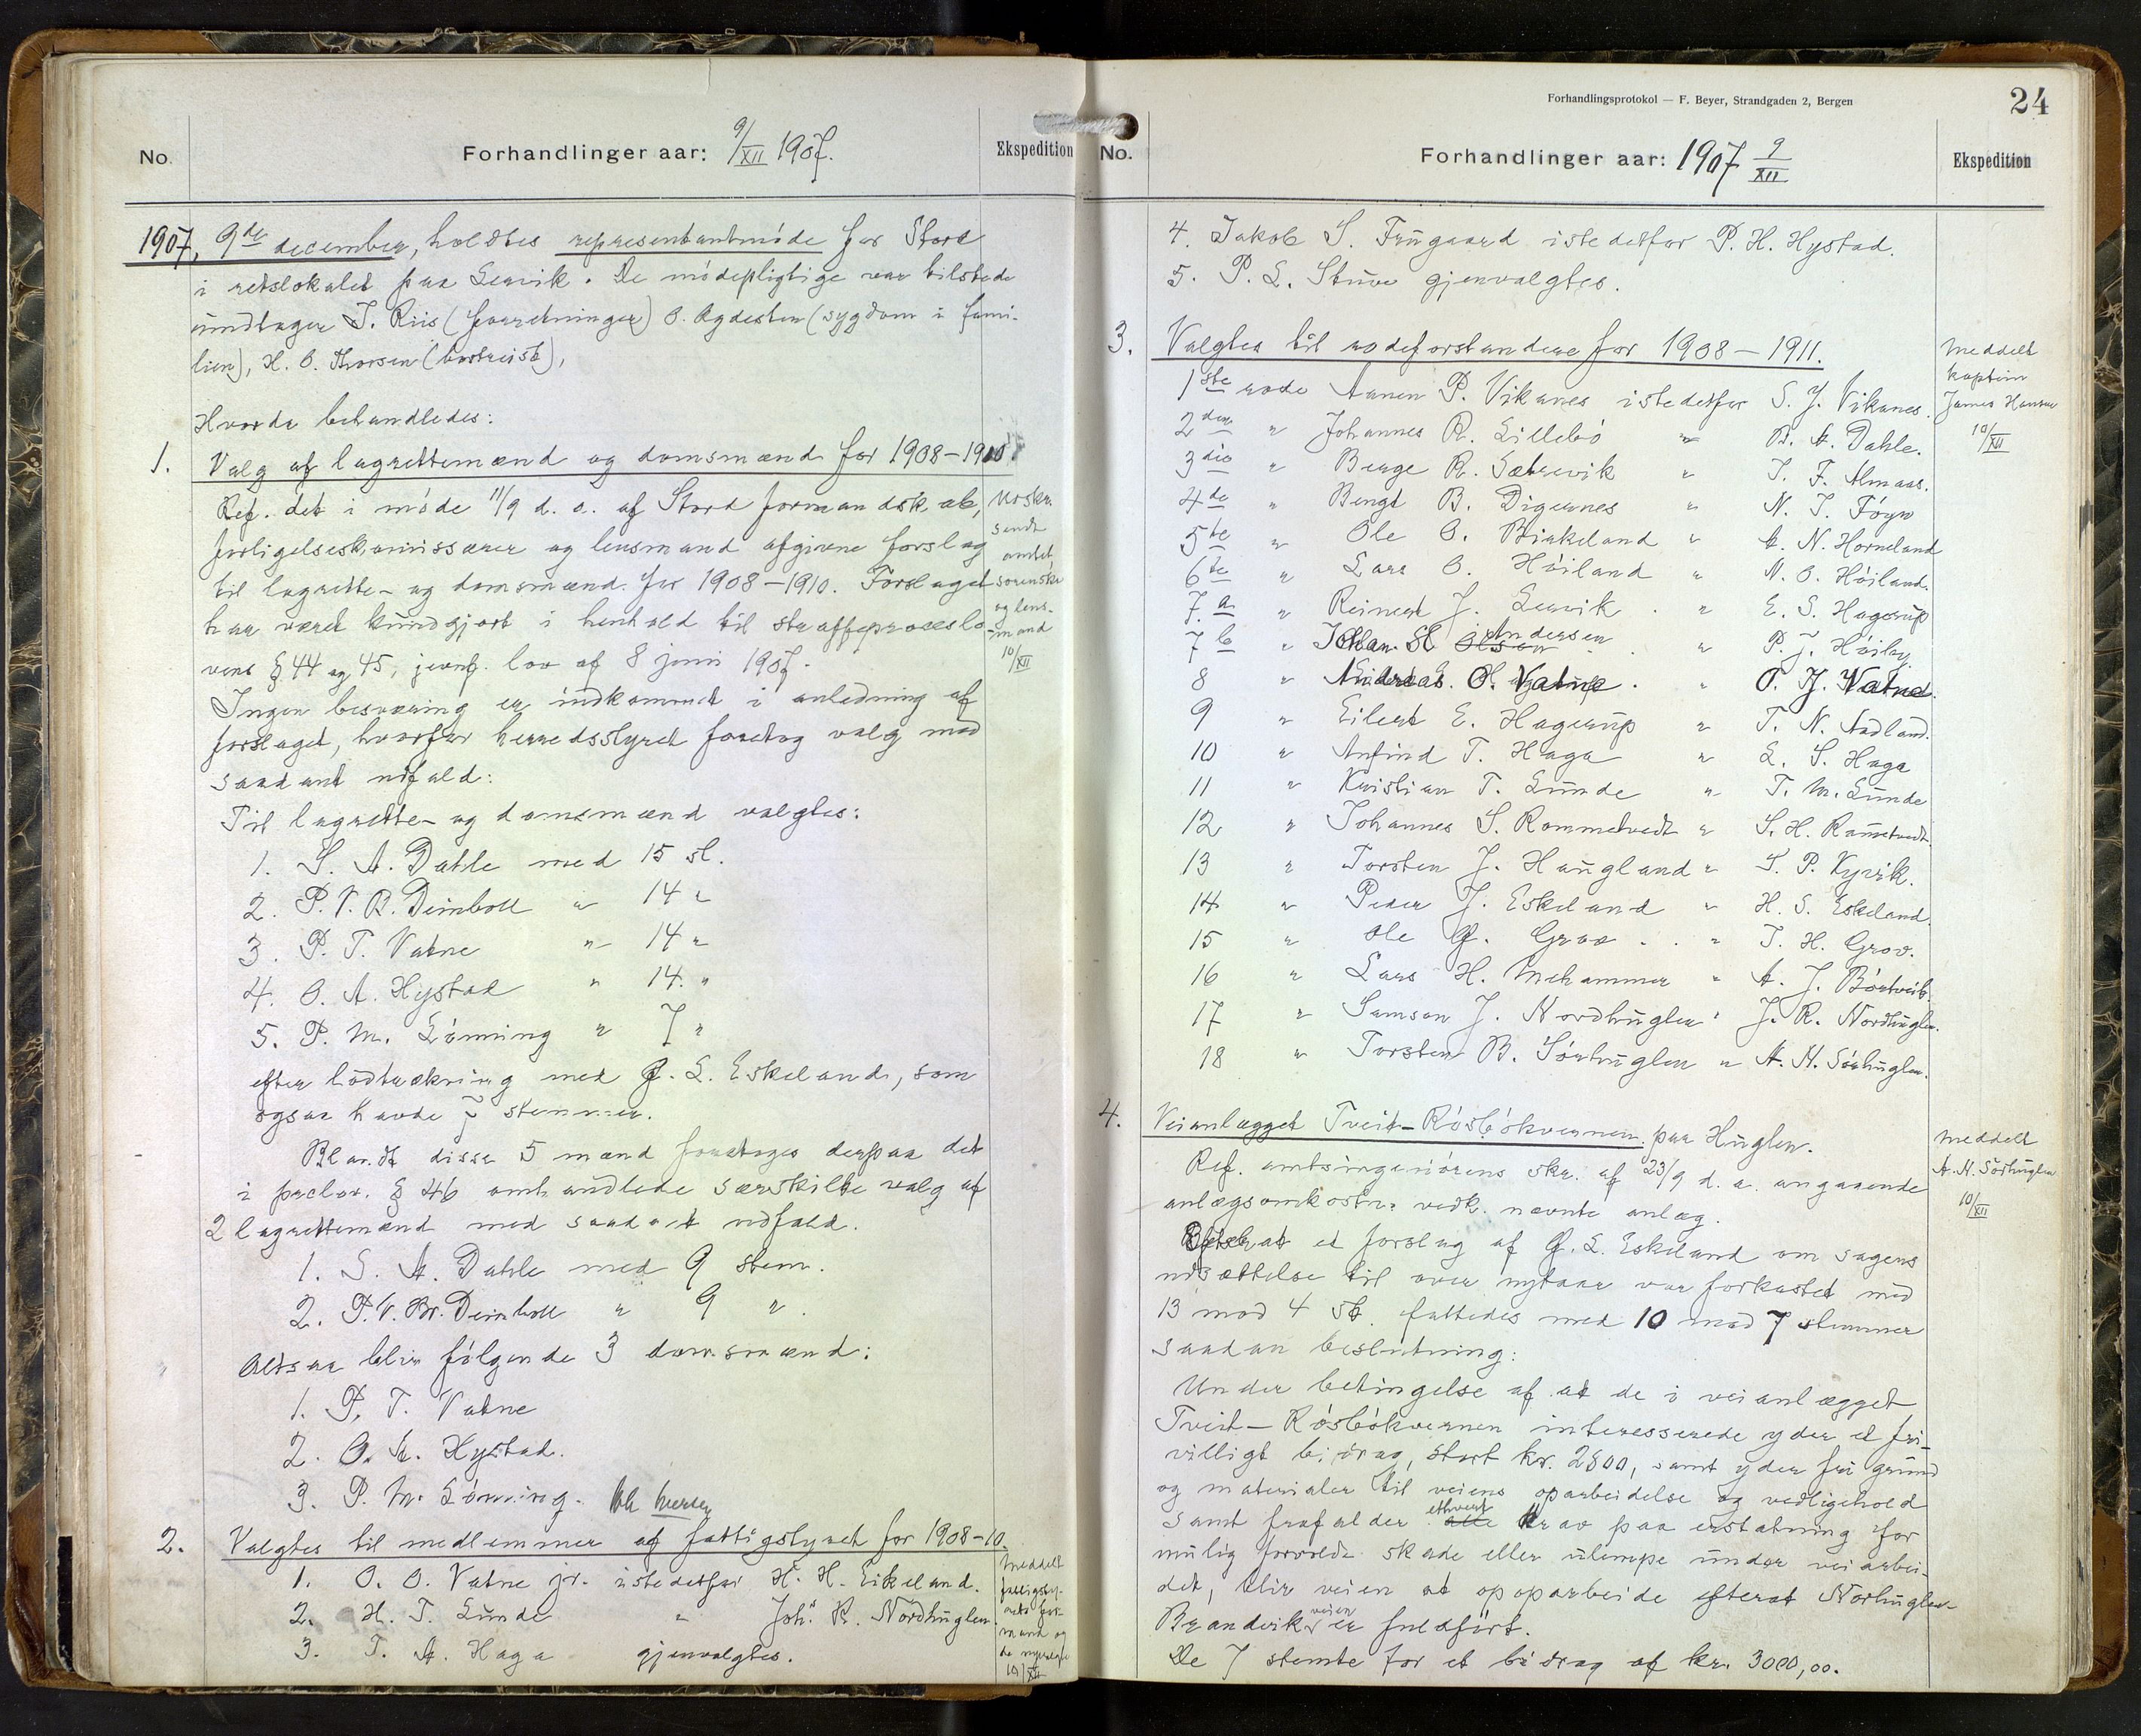 No.
Forhandlinger aar: 9/XII 1907.
Ekspedition
1907, 9de december, holdtes representantmøde for Stord
i retslokalet paa Lervik. De mødepligtige var tilstede
undtagen J. Riis (forretninger) O. Agdesten (sygdom i fami-
lien), H. O. Thorsen (bortreist),
Hvorda behandledes:
1. Valg af lagrettemænd og domsmænd for 1908–1910
Ref. det i møde 11/9 d. a. af Stord formandskab,
forligelseskomissærer og lensmand afgivne forslag
til lagrette- og domsmænd for 1908–1910. Forslaget
har været kundgjort i henhold til straffeproceslo
vens § 44 og 45, jevnf. lov af 8 juni 1907.
Ingen besværing er indkommet i anledning af
forslaget, hvorfor herredsstyret foretog valg med
saadant udfald:
Utskr.
sendt
amtet
sorenskr
og lens-
mand
10/XII
Til lagrette- og domsmænd valgtes:
1. S. A. Dahle med 15 st.
2. P. V. B. Deinboll " 14 "
3. P. T. Vatne " 14 "
4. O. A. Hystad " 14 "
5. P. M. Lønning " 7 "
efter lodtrækning med G. L. Eskeland, som
ogsaa havde 7 stemmer.
Blandt disse 5 mænd foretoges derpaa det
i prclov. § 46 omhandlede særskilte valg af
2 lagrettemænd med saadant udfald.
1. S. A. Dahle med 9 stem.
2. P. V. Br. Deinboll " 9 ".
Altsaa blir følgende 3 domsmænd:
1. P. T. Vatne
2. O. A. Hystad.
3. P. M. Lønning.
2. Valgtes til medlemmer af fattigstyret for 1908–10.
1. O. O. Vatne jr. istedetfor H. H. Eikeland.
2. H. T. Lunde " Joh. R. Nordhuglen
3. T. A. Haga gjenvalgtes.
Meddelt
fattigsty-
rets for-
mand og
de nyvalgte
10/XII
Forhandlingsprotokol — F. Beyer, Strandgaden 2, Bergen
24
No.
Forhandlinger aar: 1907 9/XII
Ekspedition
4. Jakob S. Frugaard istedetfor P. H. Hystad.
5. P. L. Stuve gjenvalgtes.
3. Valgtes til rodeforstandere for 1908–1911.
Meddelt
kaptein
James Hansen
10/XII
1ste rode Aanen P. Vikanes istedetfor S. J. Vikanes.
2den " Johannes R. Lillebø " B. A. Dahle.
3die " Berge R. Sætrevik " T. F. Almaas.
4de " Bengt B. Digernes " N. T. Føyn
5te " Ole O. Birkeland " A. N. Horneland
6te " Lars O. Høiland " N. O. Høiland.
7.a " Reinert J. Lervik " E. S. Hagerup
7 b " Johan St. Olsen Andersen " P. J. Høiby
8 " Andreas O. Vatne " O. J. Vatne.
9 " Eilert E. Hagerup " T. N. Aadland.
10 " Anfind T. Haga " L. S. Haga
11 " Kristian T. Lunde " T. M. Lunde
12 " Johannes S. Rommetvedt " S. H. Rommetvedt
13 " Torsten J. Haugland " S. P. Kyvik.
14 " Peder J. Eskeland " H. S. Eskeland.
15 " Ole G. Grov " T. H. Grov.
16 " Lars H. Mehammer " A. J. Børtveit.
17 " Samson J. Nordhuglen " J. R. Nordhuglen.
18 " Torsten B. Sørhuglen " A. H. Sørhuglen.
4. Veianlægget Tveit–Røsbøkvernen paa Huglen.
Meddelt
A. H. Sørhuglen
10/XII
Ref. amtsingeniørens skr. af 23/9 d. a. angaaende
anlægsomkostn. vedk. nævnte anlæg.
Efterat et forslag af G. L. Eskeland om sagens
udsættelse til over nytaar var forkastet med
13 mod 4 st. fattedes med 10 mod 7 stemmer
saadan beslutning:
Under betingelse af at de i veianlægget
Tveit–Røsbøkvernen interesserede yder et fri-
villigt bidrag, stort kr. 2800, samt yder fri grund
og materialer til veiens oparbeidelse og vedligehold
samt frafalder alle ethvert krav paa erstatning for
mulig forvoldt skade eller ulempe under veiarbei-
det, blir veien at opoparbeide efterat Nordhuglen-
Brandvik veien er fuldført.
De 7 stemte for et bidrag af kr. 3000,00.